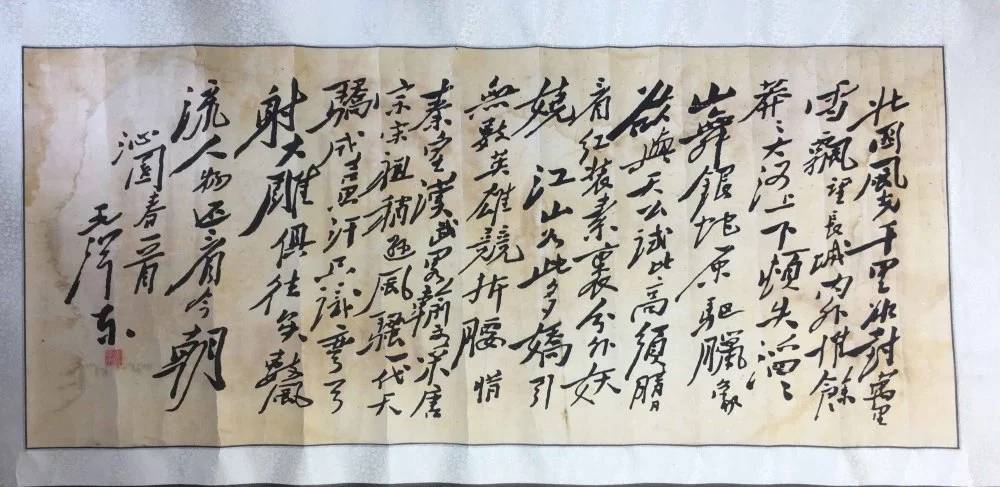 北國風光千里冰封萬里
雪飄望長城内外惟餘
莽〻大河上下頓失滔〻
山舞銀蛇原馳臘象
欲與天公試比高須晴日
看红装素裹分外妖
嬈 江山如此多嬌引
無數英雄競折腰惜
秦皇漢武略輸文采唐
宗宋祖稍遜風騷一代天
驕成吉思汗只識彎弓
射大雕俱往矣數風
流人物还看今朝
沁園春一首
毛澤东